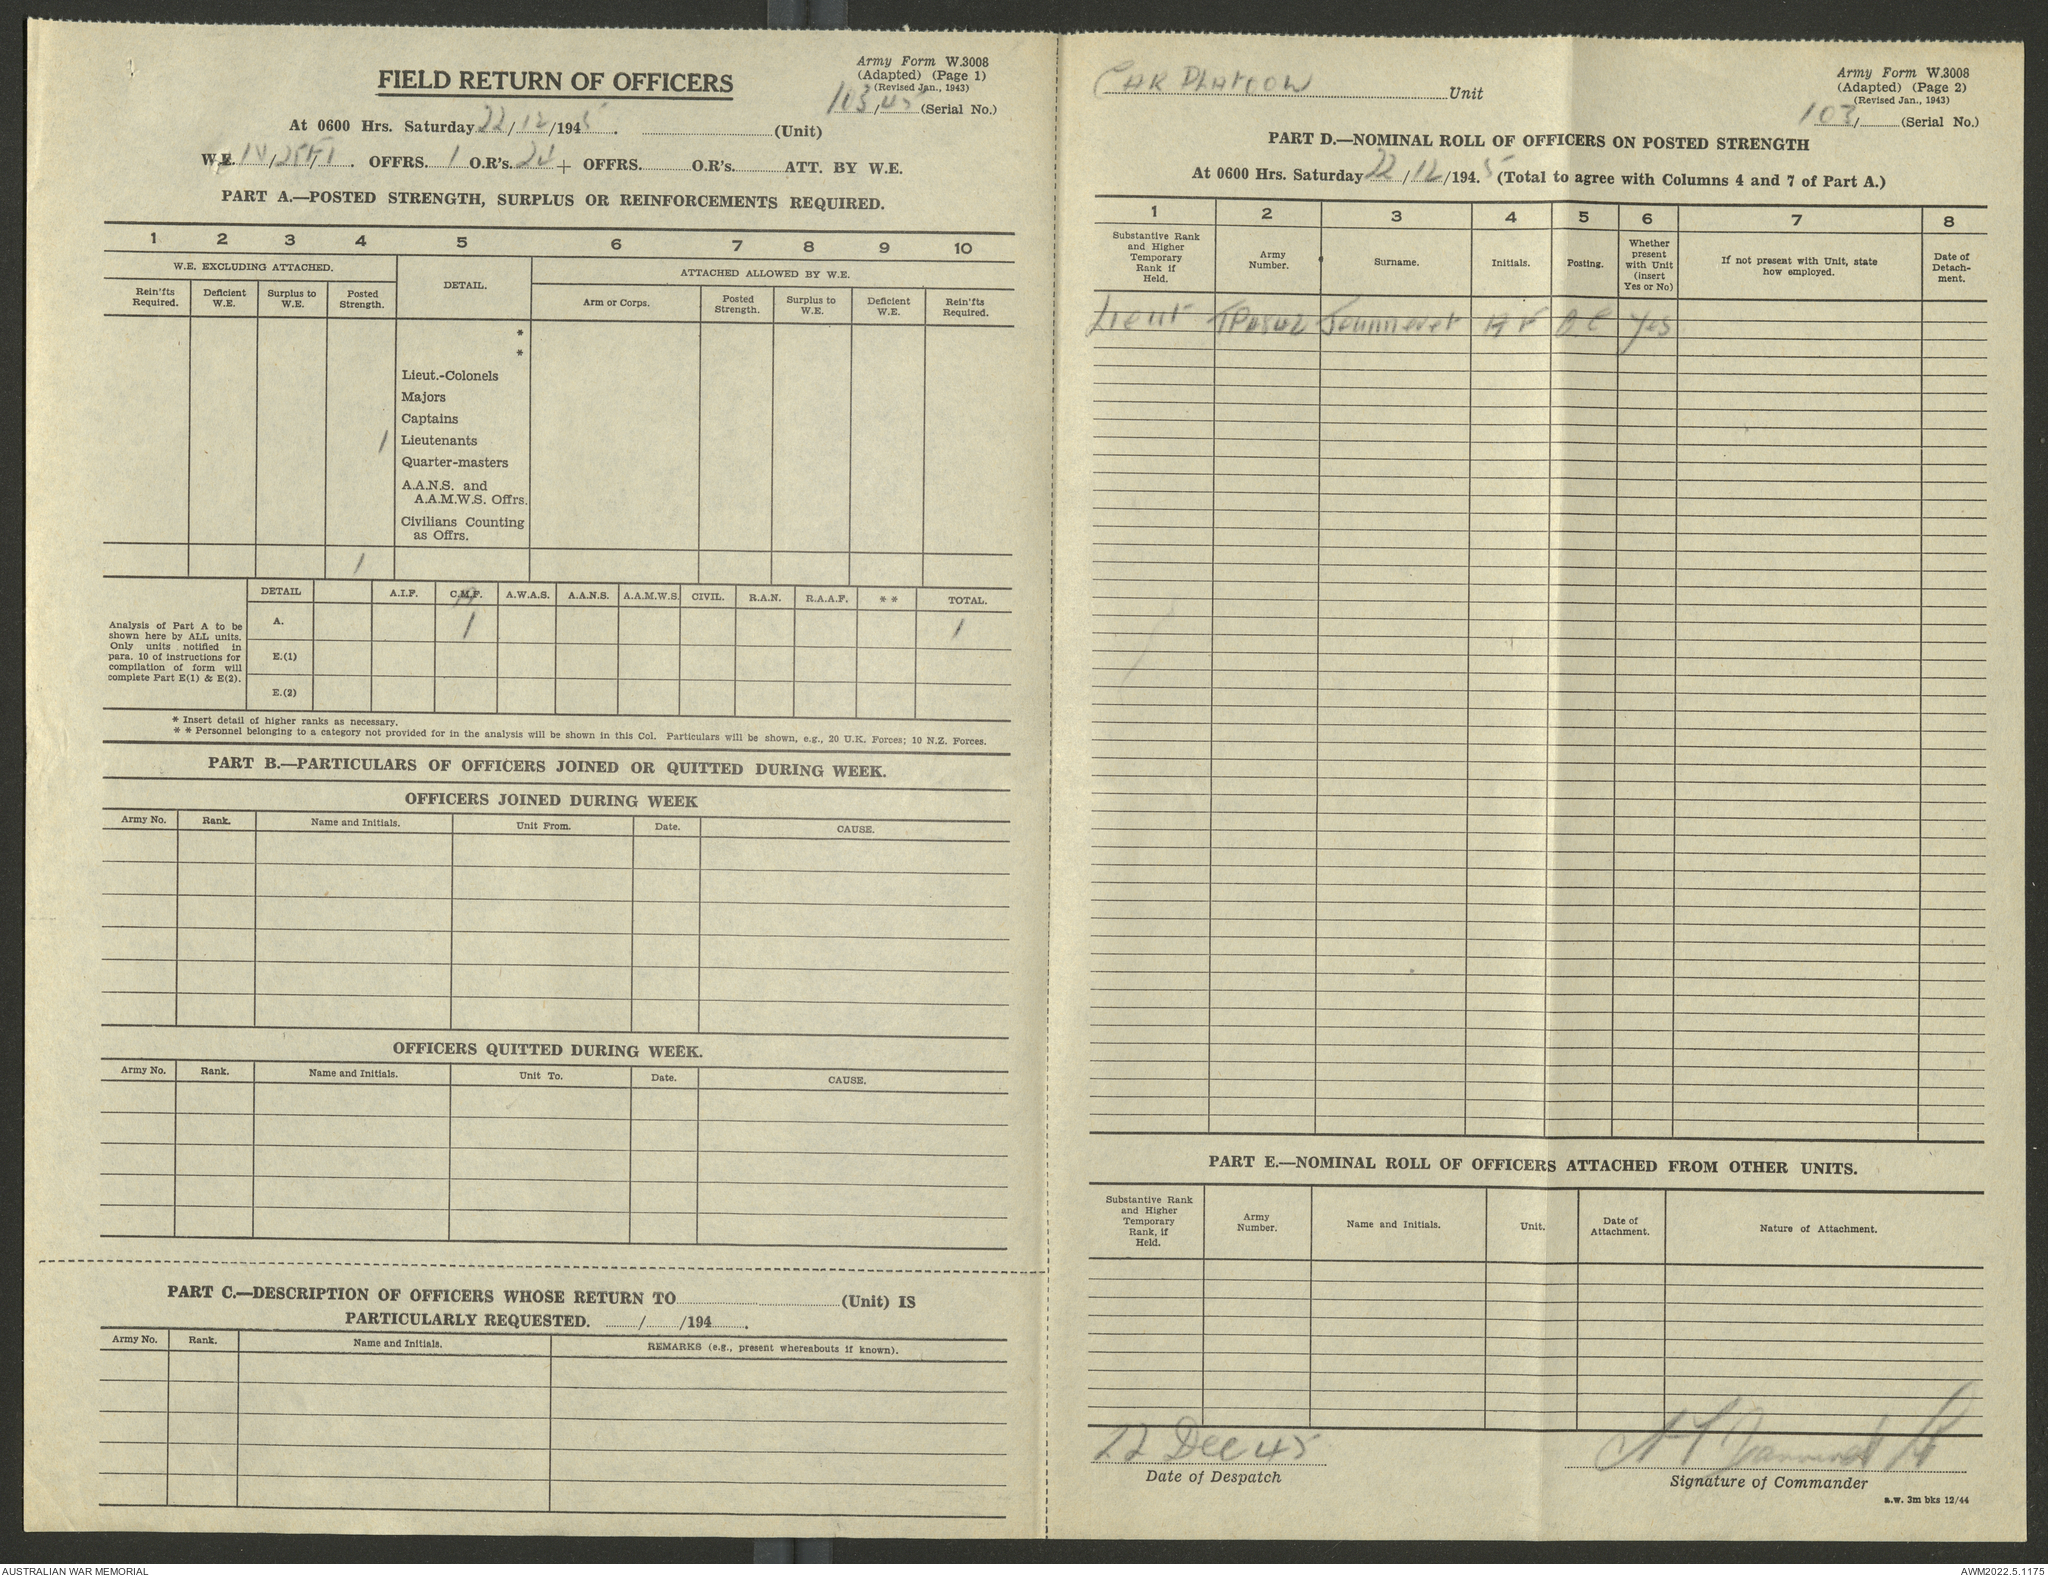 FIELD RETURN OF OFFICERS
Army Form W.3008
(Adapted) (Page 1)
(Revised Jan., 1943)
103/45 (Serial No.)
At 0600 Hrs. Saturday 22/12/1945. (Unit)
W.E. OFFRS. 1 O.R's. 24 + OFFRS. O.R's. ATT. BY W.E.
PART A.—POSTED STRENGTH, SURPLUS OR REINFORCEMENTS REQUIRED.
1 2 3 4 5 6 7 8 9 10
W.E. EXCLUDING ATTACHED. DETAIL. ATTACHED ALLOWED BY W.E.
Rein'fts Required. Deficient W.E. Surplus to W.E. Posted Strength. Arm or Corps. Posted Strength. Surplus to W.E. Deficient W.E. Rein'fts Required.
*
*
Lieut.-Colonels
Majors
Captains
1 Lieutenants
Quarter-masters
A.A.N.S. and
A.A.M.W.S. Offrs.
Civilians Counting
as Offrs.
1
DETAIL A.I.F. C.M.F. A.W.A.S. A.A.N.S. A.A.M.W.S. CIVIL. R.A.N. R.A.A.F. * * TOTAL.
Analysis of Part A to be
shown here by ALL units.
Only units notified in
para. 10 of instructions for
compilation of form will
complete Part E(1) & E(2).
A. 1 1
E.(1)
E.(2)
* Insert detail of higher ranks as necessary.
* * Personnel belonging to a category not provided for in the analysis will be shown in this Col. Particulars will be shown, e.g., 20 U.K. Forces; 10 N.Z. Forces.
PART B.—PARTICULARS OF OFFICERS JOINED OR QUITTED DURING WEEK.
OFFICERS JOINED DURING WEEK
Army No. Rank. Name and Initials. Unit From. Date. CAUSE.
OFFICERS QUITTED DURING WEEK.
Army No. Rank. Name and Initials. Unit To. Date. CAUSE.
PART C.—DESCRIPTION OF OFFICERS WHOSE RETURN TO (Unit) IS
PARTICULARLY REQUESTED. / /194 .
Army No. Rank. Name and Initials. REMARKS (e.g., present whereabouts if known).
CAR PLATOON Unit
Army Form W.3008
(Adapted) (Page 2)
(Revised Jan., 1943)
103/ (Serial No.)
PART D.—NOMINAL ROLL OF OFFICERS ON POSTED STRENGTH
At 0600 Hrs. Saturday 22/12/1945 (Total to agree with Columns 4 and 7 of Part A.)
1 2 3 4 5 6 7 8
Substantive Rank and Higher Temporary Rank if Held. Army Number. Surname. Initials. Posting. Whether present with Unit (insert Yes or No) If not present with Unit, state how employed. Date of Detach-ment.
Lieut A F O C Yes
PART E.—NOMINAL ROLL OF OFFICERS ATTACHED FROM OTHER UNITS.
Substantive Rank and Higher Temporary Rank, if Held. Army Number. Name and Initials. Unit. Date of Attachment. Nature of Attachment.
22 Dec 45
Date of Despatch
Signature of Commander
a.w. 3m bks 12/44
AUSTRALIAN WAR MEMORIAL
AWM2022.5.1175